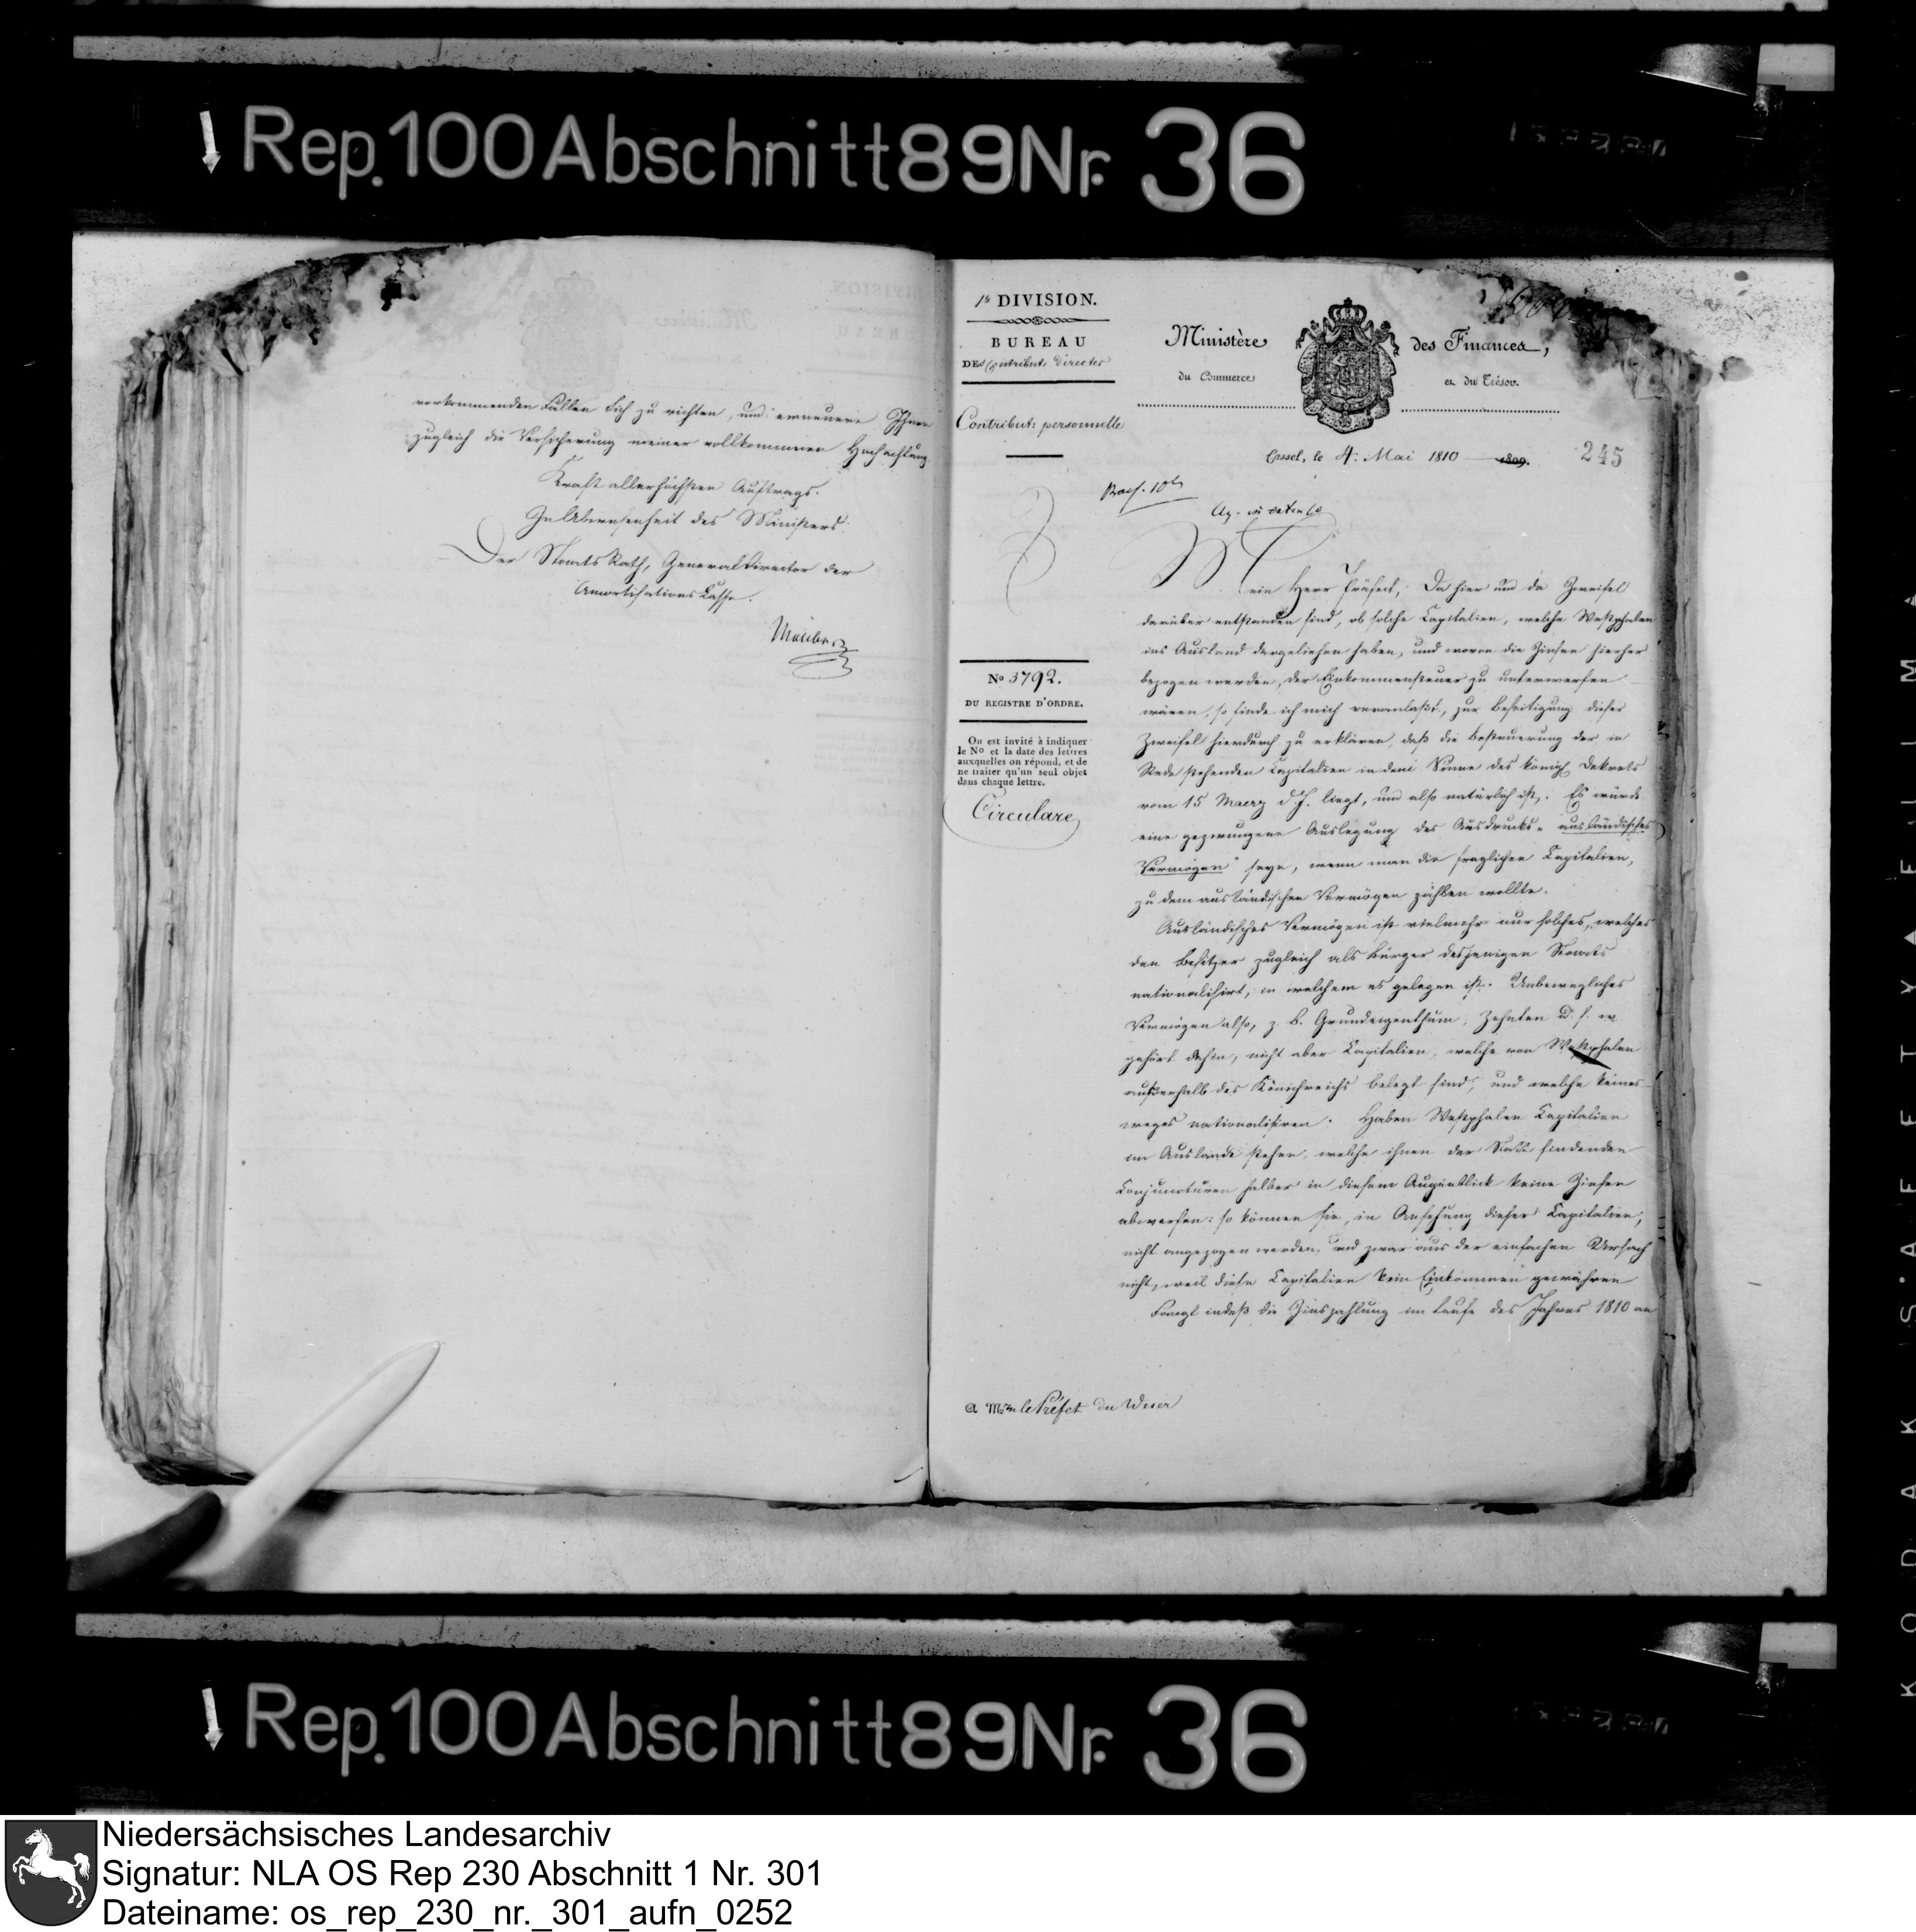 Rep.100Abschnitt89Nr. 36
vorkommenden Fällen sich zu richten, und erneuere Ihnen
zugleich die Versicherung meiner vollkommenen Hochachtung.
Kraft allerhöchsten Auftrags.
In Abwesenheit des Ministers:
Der Staats Rath, General Director der
Amortisations Casse.
1e DIVISION.
BUREAU
DES Contribut: directes
Contribut: personnelle
Ministère des Finances,
du Commerce et du Trésor.
Cassel, le 4. Mai 1810 1809.
245
No 3792.
DU REGISTRE D'ORDRE.
On est invité à indiquer
le No et la date des lettres
auxquelles on répond, et de
ne traiter qu'un seul objet
dans chaque lettre.
Circulare
Mein Herr Präfect, Da hier und da Zweifel
darüber entstanden sind, ob solche Capitalien, welche Westphalen
ins Ausland dargeliehen haben, und wovon die Zinsen hierher
bezogen werden, der Einkommensteuer zu unterwerfen
wären, so finde ich mich veranlaßt, zur Beseitigung dieser
Zweifel hierdurch zu erklären, daß die Besteuerung der in
Rede stehenden Capitalien in dem Sinne des königl Dekrets
vom 15 Maerz d. J. liegt, und also natürlich ist. Es würde
eine gezwungene Auslegung des Ausdrucks „ausländisches
Vermögen" seyn, wenn man die fraglichen Capitalien,
zu dem ausländischen Vermögen zählen wollte.
Ausländisches Vermögen ist vielmehr nur solches, welches
den Besitzer zugleich als Bürger desjenigen Staats
nationalisirt, in welchem es gelegen ist. Unbewegliches
Vermögen also, z. B. Grundeigenthum, Zehnten u. s. w
gehört dahin, nicht aber Capitalien, welche von Westphalen
außerhalb des Königreichs belegt sind, und welche keines
weges nationalisiren. Haben Westphalen Capitalien
im Auslande stehen, welche ihnen der Statt findenden
Conjuncturen halber in diesem Augenblick keine Zinsen
abwerfen: so können sie, in Ansehung dieser Capitalien,
nicht angezogen werden, und zwar aus der einfachen Ursach
nicht, weil diese Capitalien kein Einkommen gewähren
Fängt indeß die Zinszahlung im Laufe des Jahres 1810 an
a Mr le Préfet du Weser
Rep.100Abschnitt89Nr. 36
Niedersächsisches Landesarchiv
Signatur: NLA OS Rep 230 Abschnitt 1 Nr. 301
Dateiname: os_rep_230_nr._301_aufn_0252